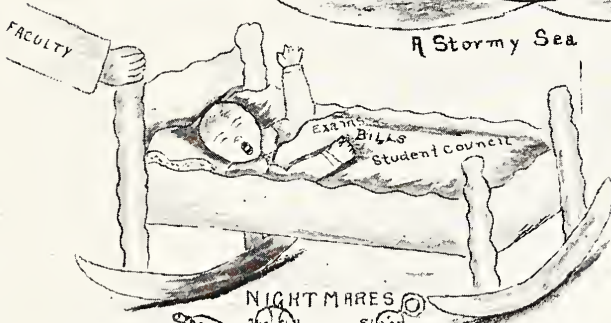 FACULTY
A Stormy Sea
Exams
BILLS
Student Council
NIGHTMARES